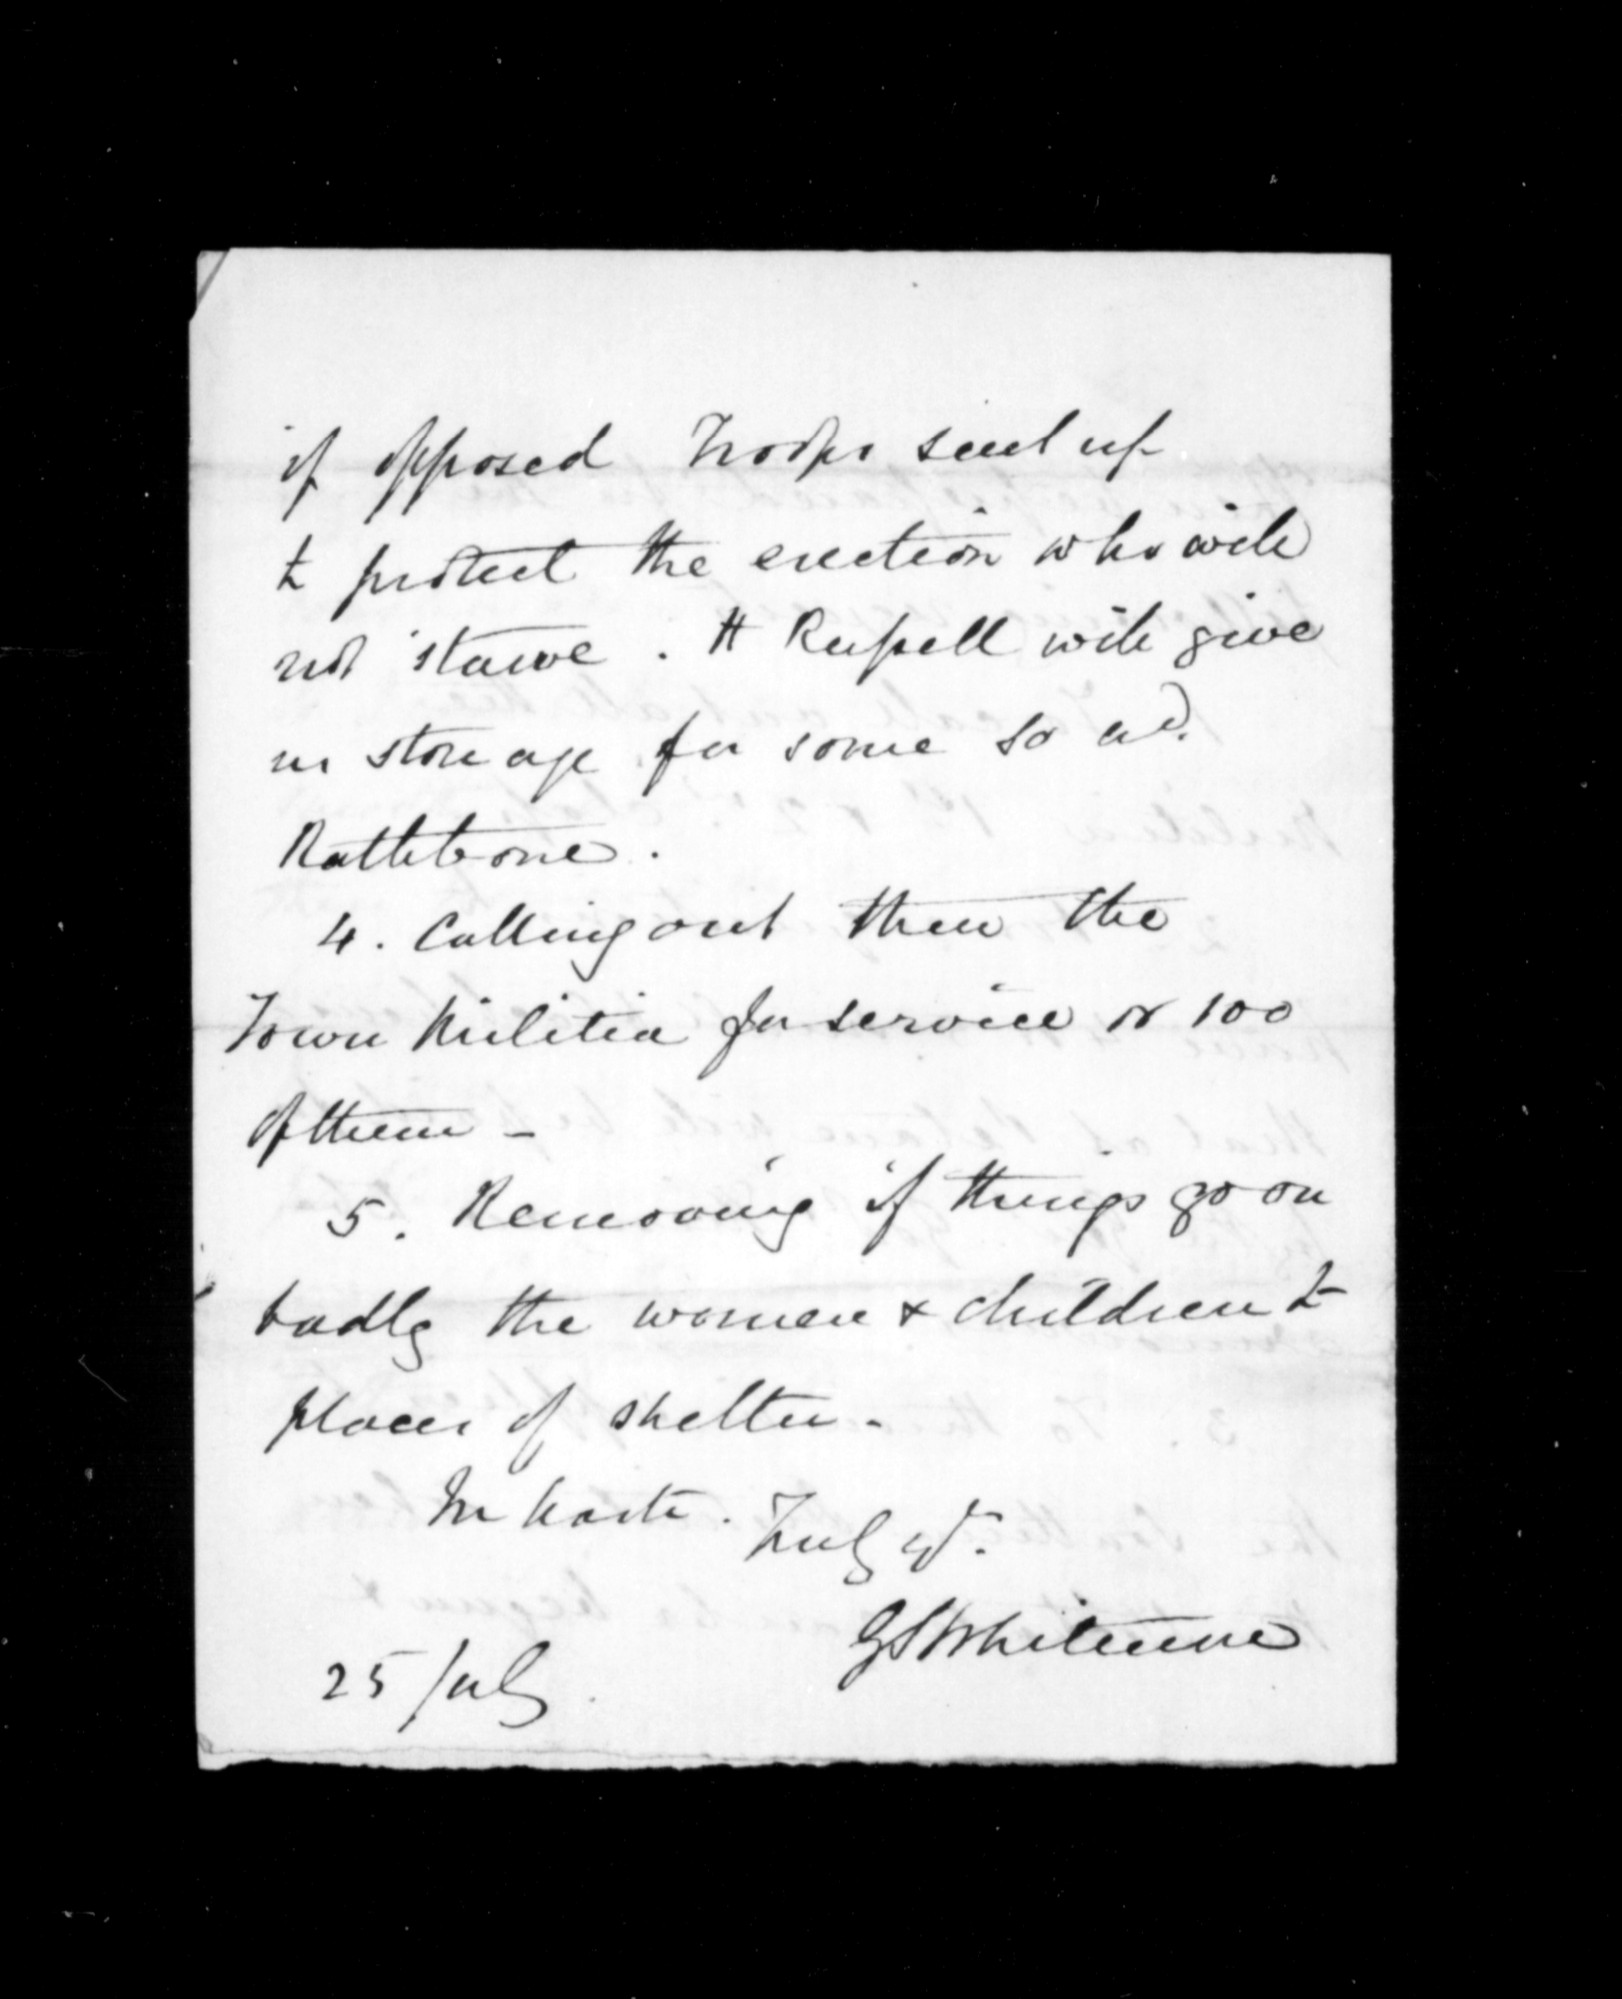 if opposed Troops sent up
to protect the erection who will
not starve. H Russell will give
us storage for some so wd.
Rathbone.
4. Calling out then the
Town Militia for service or 100
of them -
5. Removing if things go on
badly the women & children to
places of shelter.
In haste. Truly yrs.
GS Whitmore
25 July.